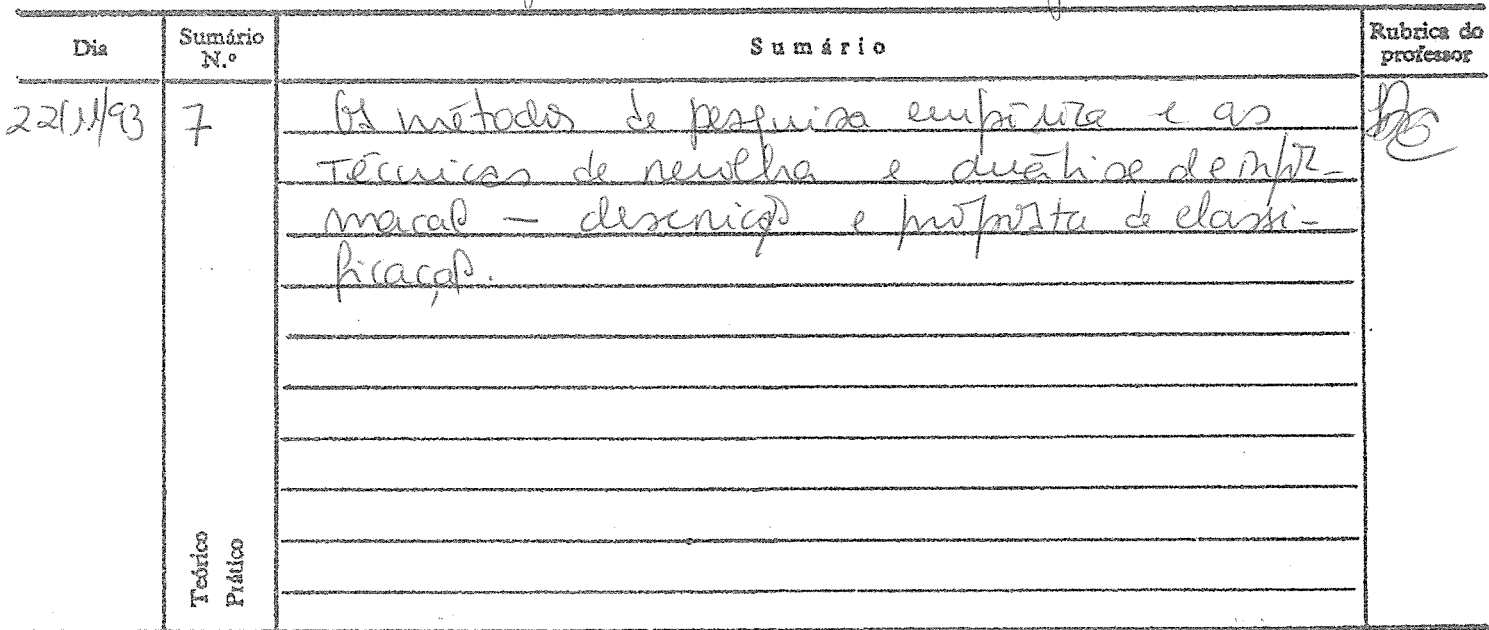 Dia
Sumário N.º
Sumário
Rubrica do professor
22/11/93
7
Os métodos de pesquisa empírica e as
técnicas de recolha e análise de infor-
mação — descrição e proposta de classi-
ficação.
Teórico
Prático